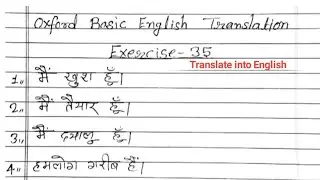 Oxford Basic English Translation
Exercise-35
Translate into English
1,, मैं खुश हूँ।
2,, मैं तैयार हूँ।
3,, मैं दयालु हूँ।
4,, हमलोग गरीब हैं।